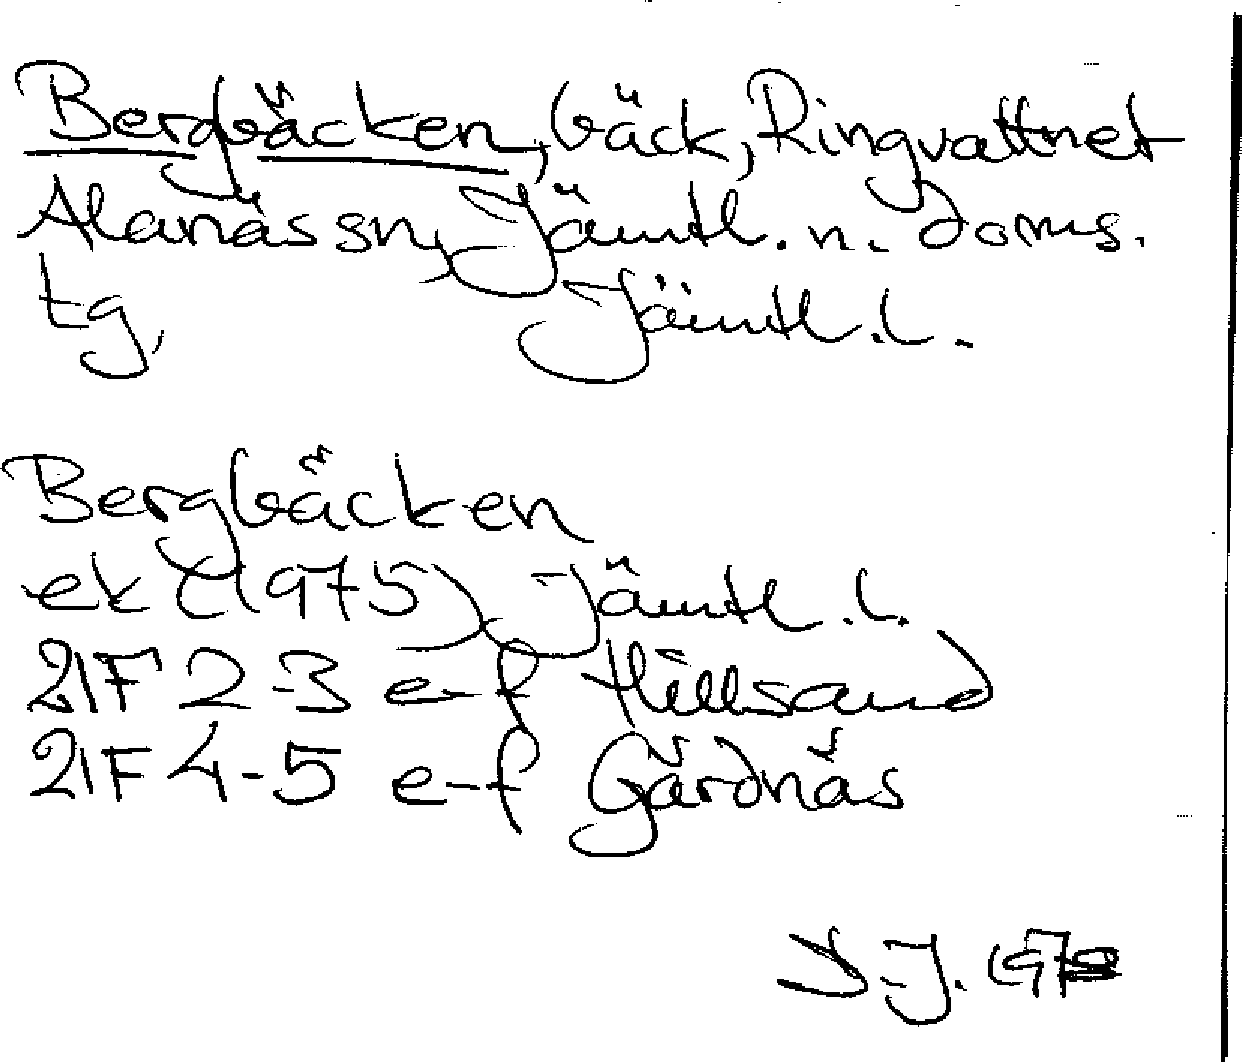 Bergbäcken, bäck, Ringvattnet
Alanäs sn, Jämtl. n. doms.
tg, Jämtl. l.
Bergbäcken
ek (1975) Jämtl. l.
21F 2-3 e-f Hillsand
21F 4-5 e-f Gärdnäs
J.